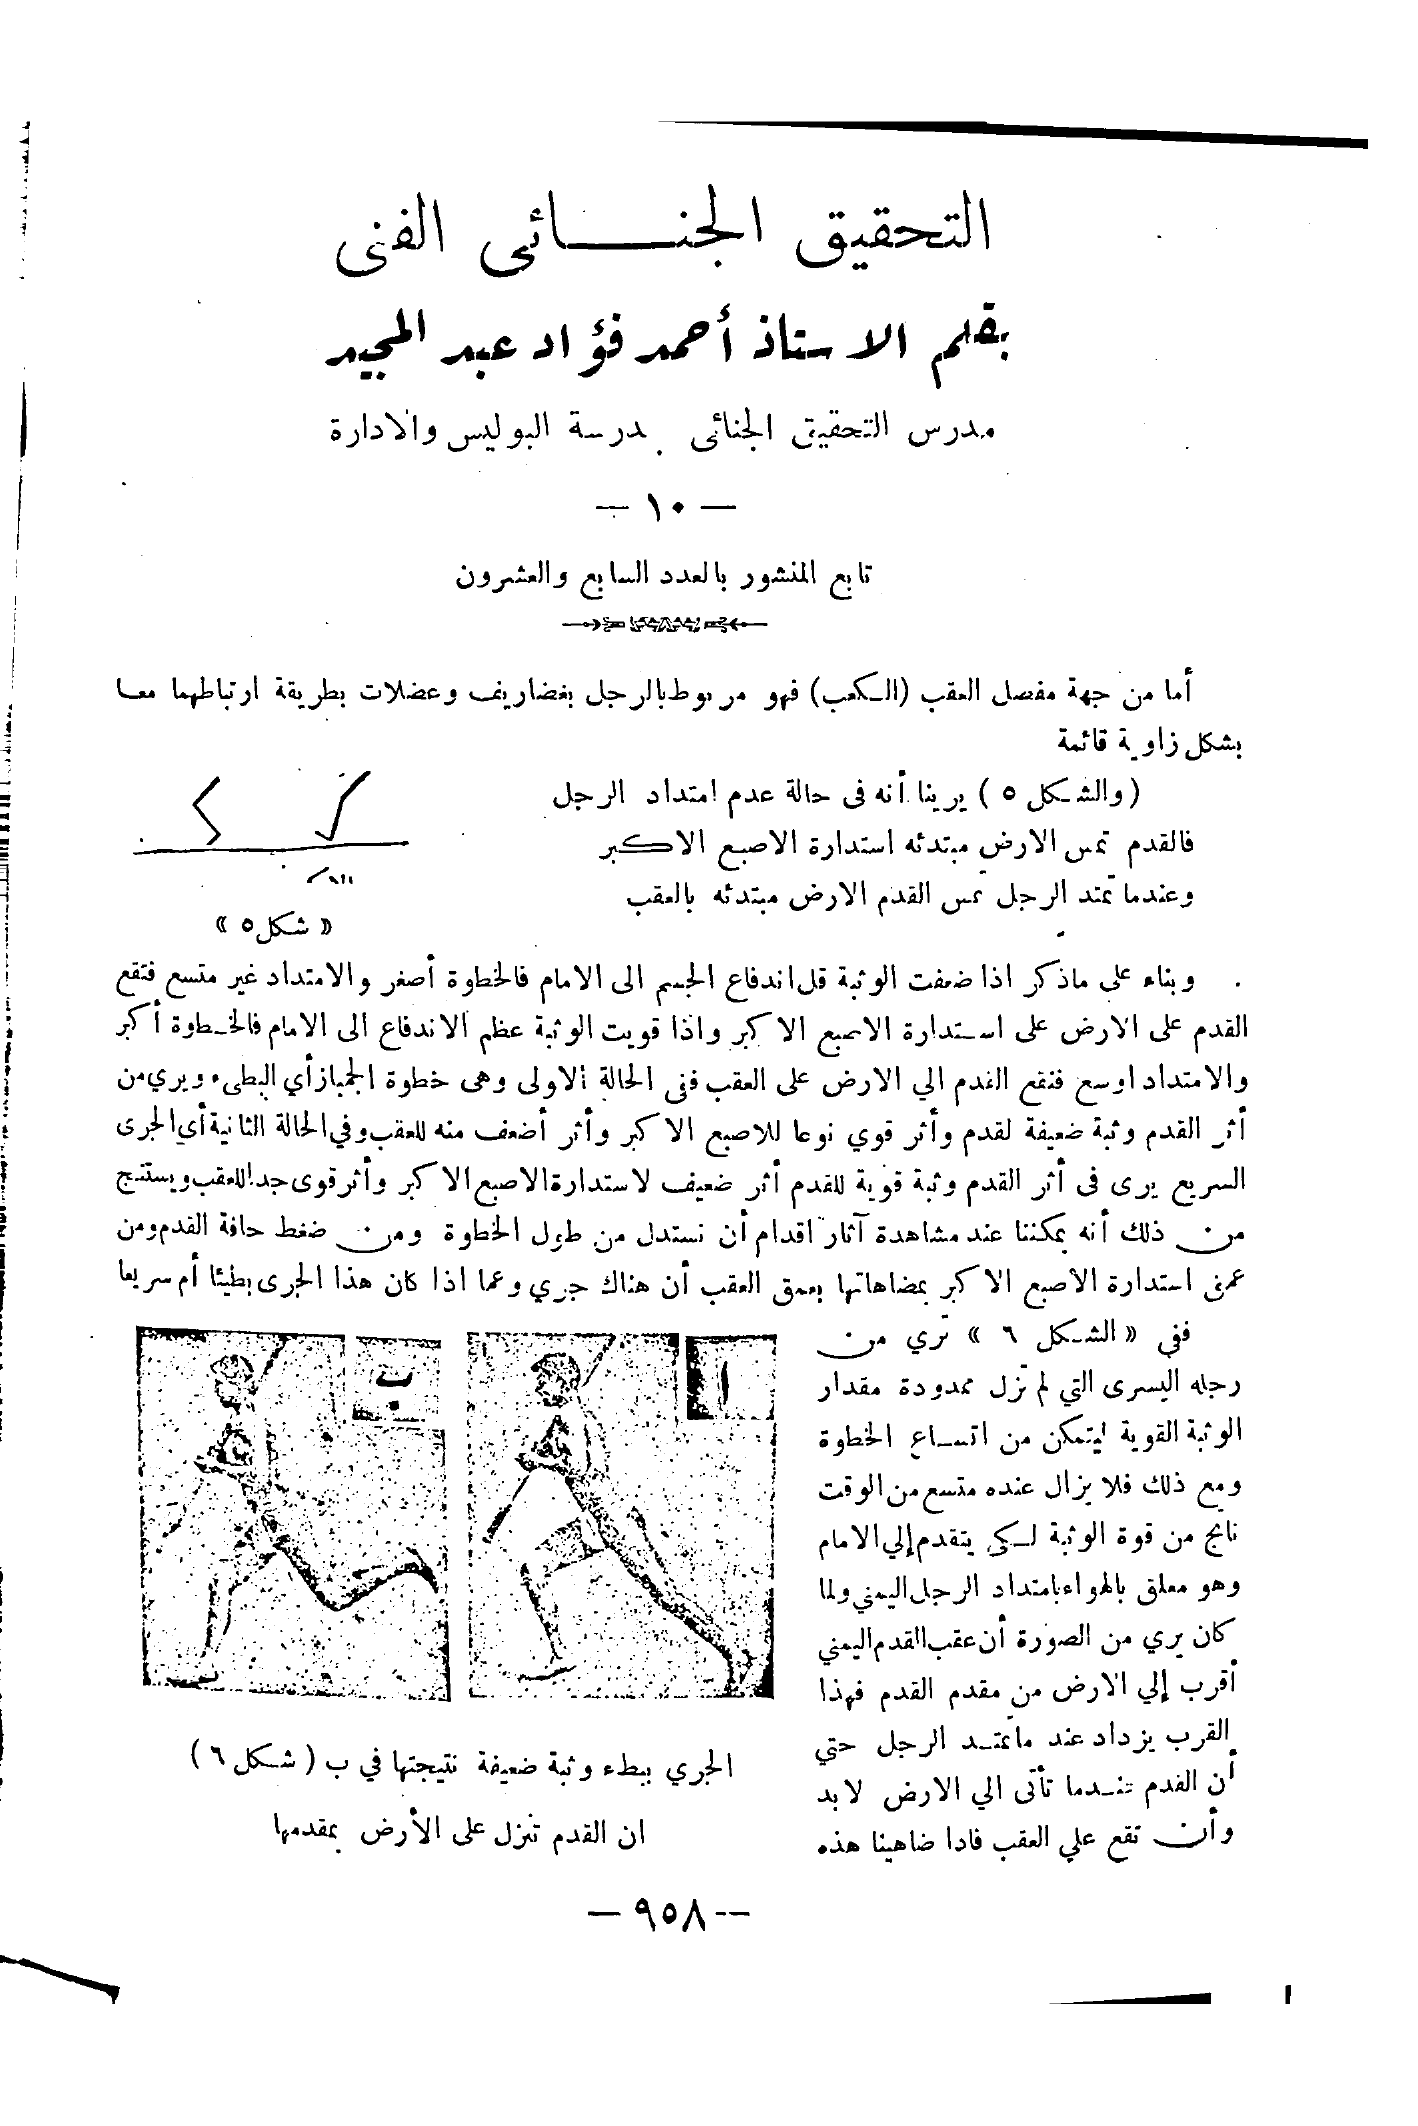 التحقيق الجنائى الفنى
بقلم الاستاذ أحمد فؤاد عبد المجيد
مدرس التحقيق الجنائى بمدرسة البوليس والادارة
— ١٠ —
تابع المنشور بالعدد السابع والعشرون
أما من جهة مفصل العقب (الكعب) فهو مربوط بالرجل بغضاريف وعضلات بطريقة ارتباطهما معا
بشكل زاوية قائمة
(والشكل ٥ ) يرينا أنه فى حالة عدم امتداد الرجل
فالقدم تمس الارض مبتدئه استدارة الاصبع الاكبر
وعندما تمتد الرجل تمس القدم الارض مبتدئه بالعقب
« شكل ٥ »
وبناء على ماذكر اذا ضعفت الوثبة قل اندفاع الجسم الى الامام فالخطوة أصغر والامتداد غير متسع فتقع
القدم على الارض على استدارة الاصبع الاكبر واذا قويت الوثبة عظم الاندفاع الى الامام فالخطوة أكبر
والامتداد اوسع فتقع القدم الي الارض على العقب ففى الحالة الاولى وهى خطوة الجمباز أي البطىء ويري من
أثر القدم وثبة ضعيفة لقدم وأثر قوي نوعا للاصبع الاكبر وأثر أضعف منه للعقب وفي الحالة الثانية أي الجرى
السريع يرى فى أثر القدم وثبة قوية للقدم أثر ضعيف لاستدارة الاصبع الاكبر وأثر قوى جدا للعقب ويستنتج
من ذلك أنه يمكننا عند مشاهدة آثار اقدام أن نستدل من طول الخطوة ومن ضغط حافة القدم ومن
عمق استدارة الاصبع الاكبر بمضاهاتها بعمق العقب أن هناك جري وعما اذا كان هذا الجرى بطيئا أم سريعا
ففي « الشكل ٦ » نري من
رجله اليسرى التي لم تزل ممدودة مقدار
الوثبة القوية ليتمكن من اتساع الخطوة
ومع ذلك فلا يزال عنده متسع من الوقت
ناتج من قوة الوثبة لكي يتقدم إلي الامام
وهو معلق بالهواء بامتداد الرجل اليمني ولما
كان يري من الصورة أن عقب القدم اليمني
أقرب إلي الارض من مقدم القدم فهذا
القرب يزداد عند ما تمتد الرجل حتي
أن القدم عندما تأتى الي الارض لابد
وأن تقع علي العقب فاذا ضاهينا هذه
ا
ب
الجري ببطء وثبة ضعيفة نتيجتها في ب ( شكل ٦ )
ان القدم تنزل على الأرض بمقدمها
— ٩٥٨ —